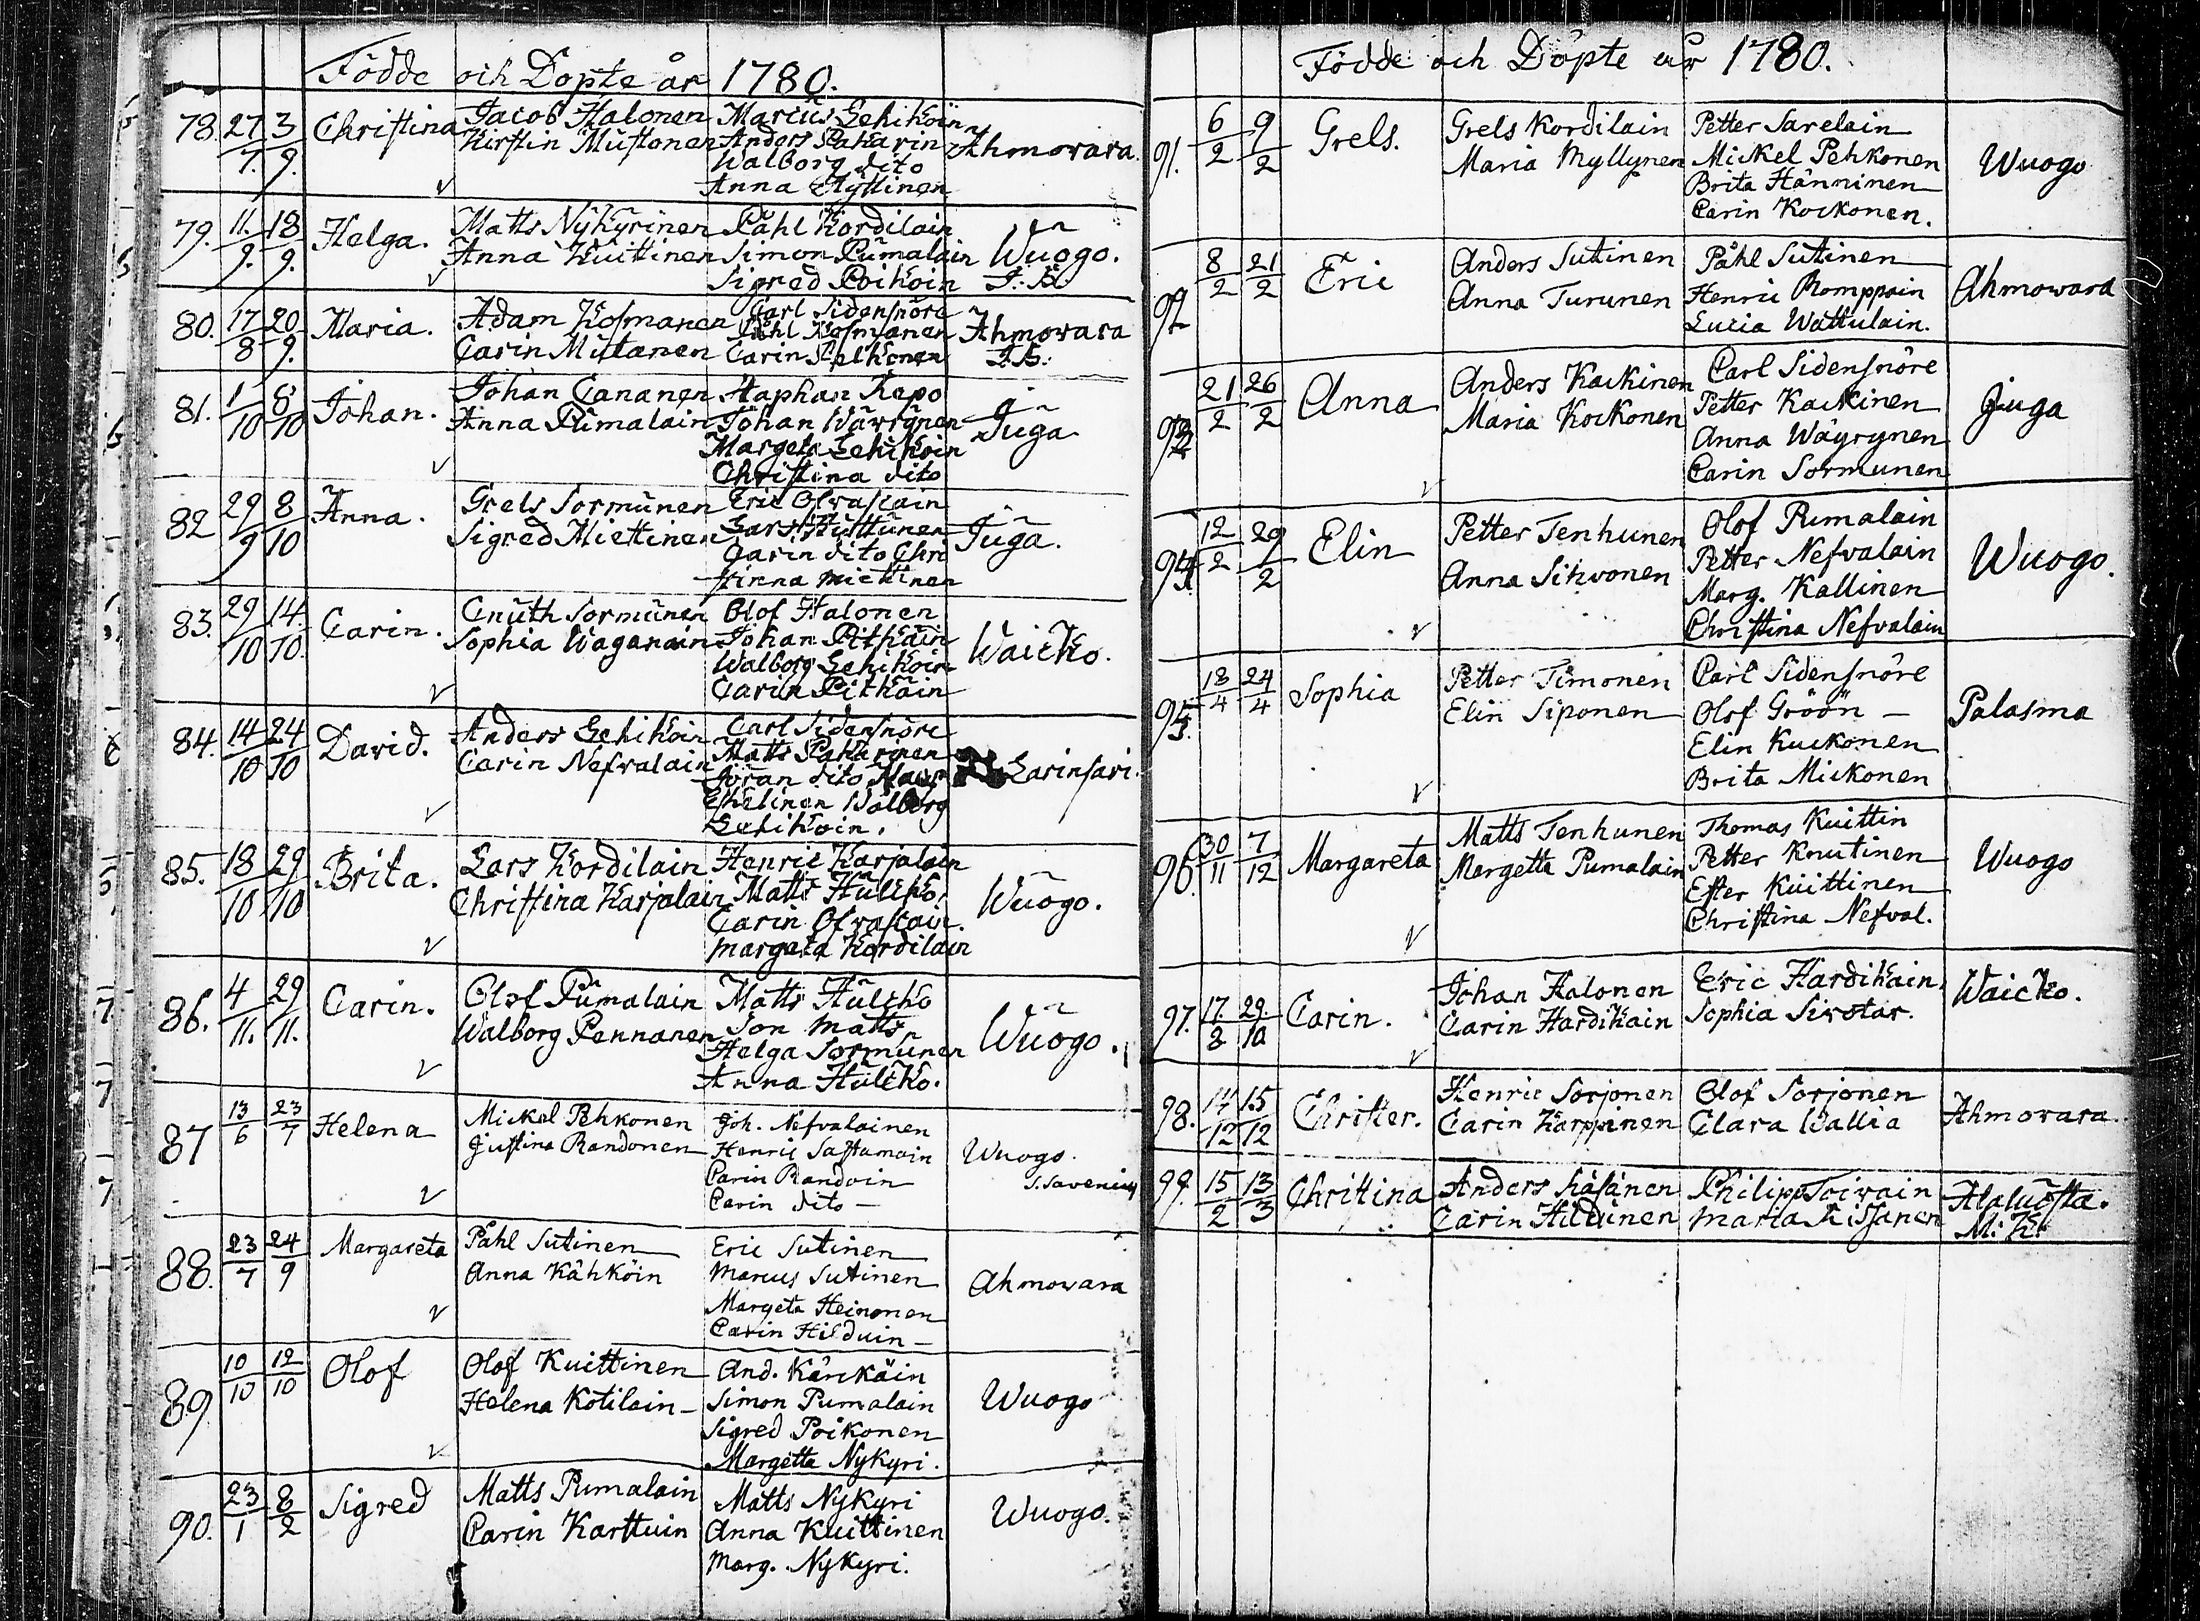 Födde och Döpte år 1780.
78. 27/7. 3/9. Christina Jacob Halonen Marcus Lehikoin Ahmovara.
Kirstin Mustonen Anders Pakarin
Walborg dito
Anna Hyttinen
79. 11./9. 18/9. Helga. Matts Nykyrinen Påhl Kordilain Wuogo.
Anna Kuittinen Simon Pumalain
Sigred Poikoin
80. 17/8 20/9. Maria. Adam Kosmanen Carl Sidensnöre Ahmovara
Carin Mutanen Påhl Kosmanen
Carin
81. 1/10 8/10 Johan. Johan Cananen Staphan Repo Juga
Anna Pumalain Johan Wäyrynen
Margeta Lehikoin
Christina dito
82 29/9 8/10 Anna. Grels Sormunen Eric Olvaslain Juga.
Sigred Miettinen Lars Huttunen
Carin dito Chri
stinna miettinen
83. 29/10 14./10. Carin. Cnuth Sormunen Olof Halonen Waicko.
Sophia Waganain Johan Pitkäin
Walborg Lehikoin
Carin Pitkäin
84. 14/10 24/10 David. Anders Lehikoin Carl Sidensnöre Larinsari.
Carin Nefvalain Matts Pakarinen
Göran dito
Eskelinen Walborg
Lehikoin.
85. 18/10 29/10 Brita. Lars Kordilain Henric Karjalain Wuogo.
Christina Karjalain Matts Hulcko,
Carin Olvaslain.
margeta Kordilain
86. 4/11. 29/11. Carin. Olof Pumalain Matts Hulcko Wuogo.
Walborg Pennanen Son Matts
Helga Sormunen
Anna Hulcko.
87 13/6 23/7 Helena Mickel Pehkonen Joh. Nefvalainen Wuogo.
Justina Randonen Henric Sastamoin S. Savenius
Carin Randoin
Carin dito —
88. 23/7 24/9 Margareta Påhl Sutinen Eric Sutinen Ahmovara
Anna Kähköin Marcus Sutinen
Margeta Heinonen
Carin Hilduin —
89 10/10 12/10 Olof Olof Kuittinen And. Kärckäin Wuogo
Helena Kotilain — Simon Pumalain
Sigred Poikonen
Margetta Nykyri.
90. 23/1 8/2 Sigred Matts Pumalain Matts Nykyri Wuogo.
Carin Karttuin Anna Kuittinen
Marg. Nykyri.
Födde och Döpte år 1780.
91. 6/2 9/2 Grels. Grels Kordilain Petter Sarelain Wuogo
Maria Myllynen Mickel Pehkonen
Brita Hänninen
Carin Kockonen.
92 8/2 21/2 Eric Anders Sutinen Påhl Sutinen Ahmovara
Anna Turunen Henric Romppain
Lucia Wattulain.
93 21/2 26/2 Anna Anders Kackinen Carl Sidensnöre Juga
Maria Kockonen Petter Kackinen
Anna Wäyrynen
Carin Sormunen
94 12/2 29/2 Elin Petter Tenhunen Olof Pumalain Wuogo.
Anna Sihvonen Petter Nefvalain
Marg. Kallinen
Christina Nefvalain
95. 18/4 24/4 Sophia Petter Timonen Carl Sidensnöre Palasma
Elin Siponen Olof Gröön —
Elin Kuckonen
Brita Mickonen
96. 30/11 7/12 Margareta Matts Tenhunen Thomas Kuittin Wuogo
Margetta Pumalain Petter Knutinen
Ester Kuittinen
Christina Nefval.
97. 17./8 29./10 Carin. Johan Halonen Eric Hardikain, Waicko.
Carin Hardikain Sophia Sivotar.
98. 14/12 15/12 Christer. Henric Sorjonen Olof Sorjonen Ahmovara.
Carin Karppinen Clara Wallia
99. 15/2 13/3 Christina Anders Käsänen Philipp Toivain Alaluosta.
Carin Hildunen maria Kissanen M: K: